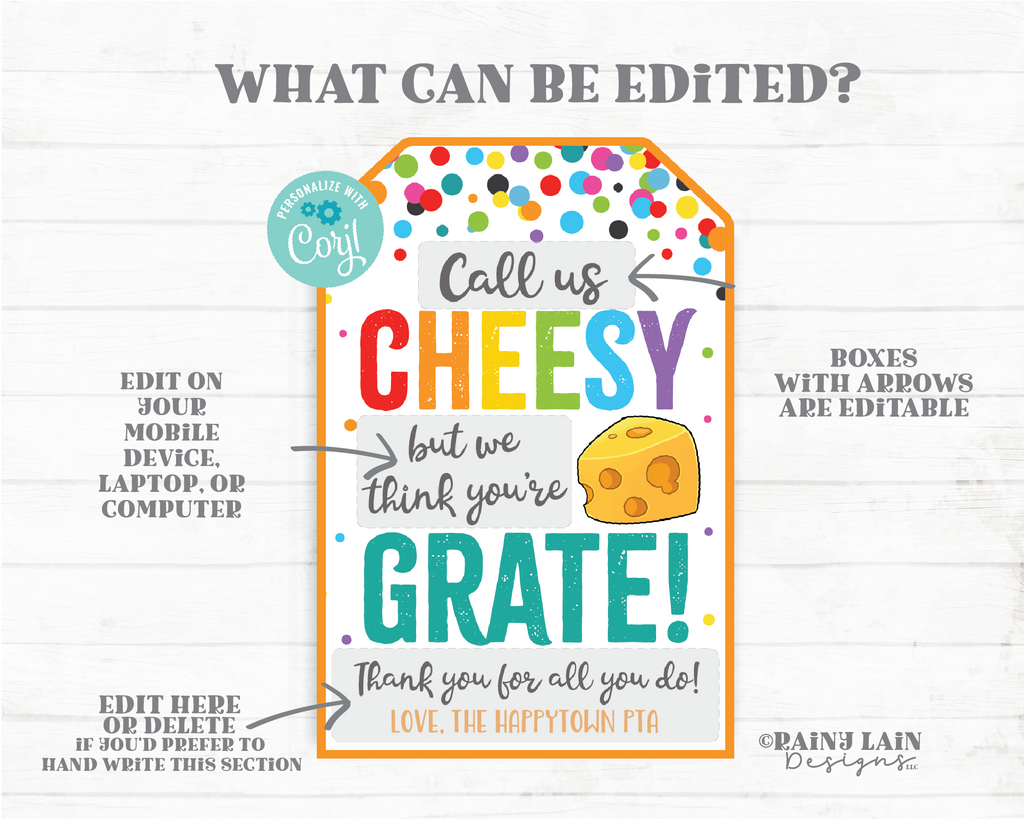 WHAT CAN BE EDiTED?
PERSONALIZE WITH
Corjl
Call us
CHEESY
but we
think you're
GRATE!
Thank you for all you do!
LOVE, THE HAPPYTOWN PTA
EDIT ON
YOUR
MOBiLE
DEViCE,
LAPTOP, OR
COMPUTER
BOXES
WiTH ARROWS
ARE EDiTABLE
EDIT HERE
OR DELETE
iF YOU'D PREFER TO
HAND WRiTE THiS SECTiON
©RAiNY LAiN
Designs LLC